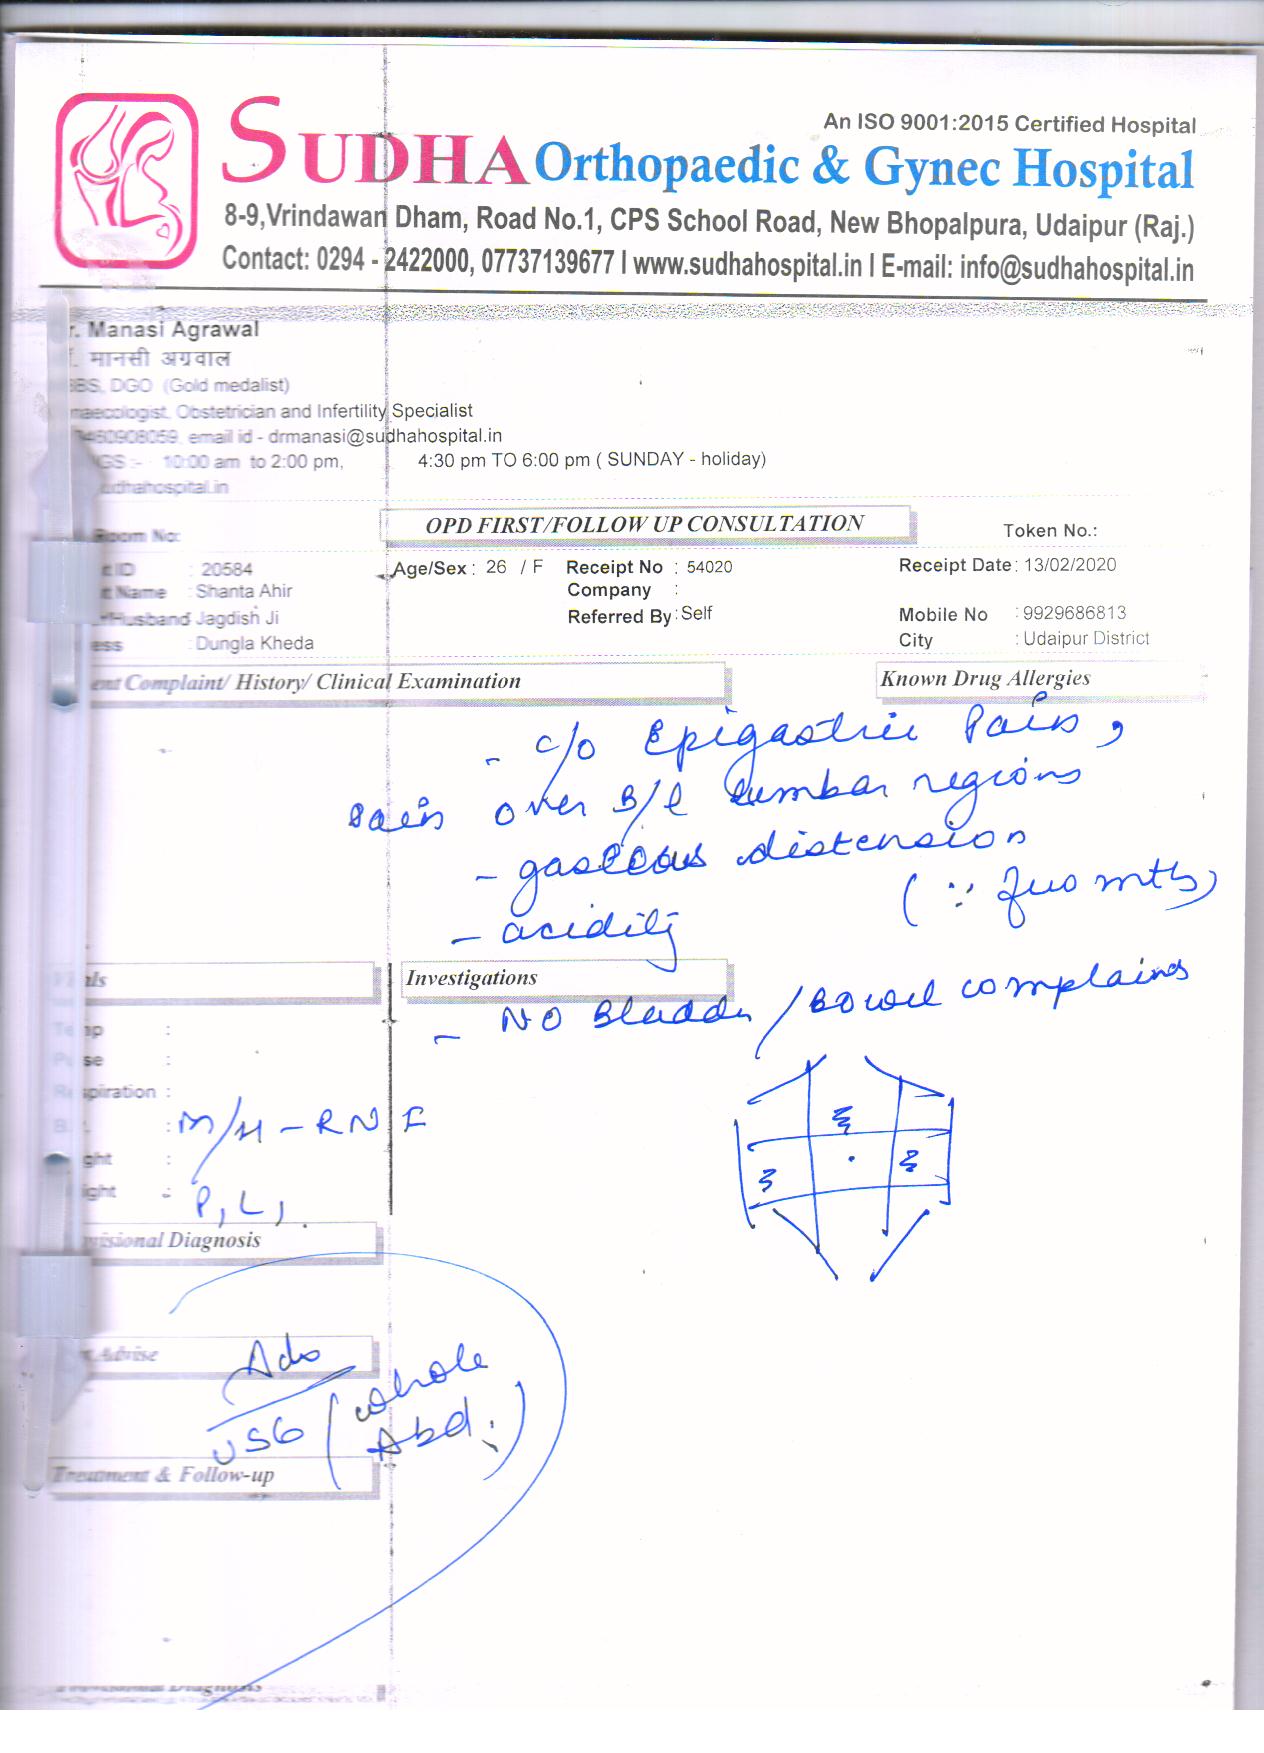 An ISO 9001:2015 Certified Hospital
SUDHA Orthopaedic & Gynec Hospital
8-9,Vrindawan Dham, Road No.1, CPS School Road, New Bhopalpura, Udaipur (Raj.)
Contact: 0294 - 2422000, 07737139677 I www.sudhahospital.in I E-mail: info@sudhahospital.in
r. Manasi Agrawal
. मानसी अग्रवाल
BBS, DGO (Gold medalist)
naecologist, Obstetrician and Infertility Specialist
9460908059, email id - drmanasi@sudhahospital.in
GS :- 10:00 am to 2:00 pm, 4:30 pm TO 6:00 pm ( SUNDAY - holiday)
udhahospital.in
OPD FIRST/FOLLOW UP CONSULTATION
Room No: Token No.:
ID : 20584 Age/Sex : 26 / F Receipt No : 54020 Receipt Date : 13/02/2020
Name : Shanta Ahir Company :
/Husband Jagdish Ji Referred By : Self Mobile No : 9929686813
ess : Dungla Kheda City : Udaipur District
ent Complaint/ History/ Clinical Examination Known Drug Allergies
- c/o Epigastric Pain,
Pain over B/L lumbar regions
- gaseous distension
- acidity (∵ few mths)
als Investigations
- NO Bladder / Bowel complains
mp :
se :
spiration :
B. : M/H - RNF
ght :
ight : P1L1
visional Diagnosis
Advise
Adv
USG (whole Abd.)
Treatment & Follow-up